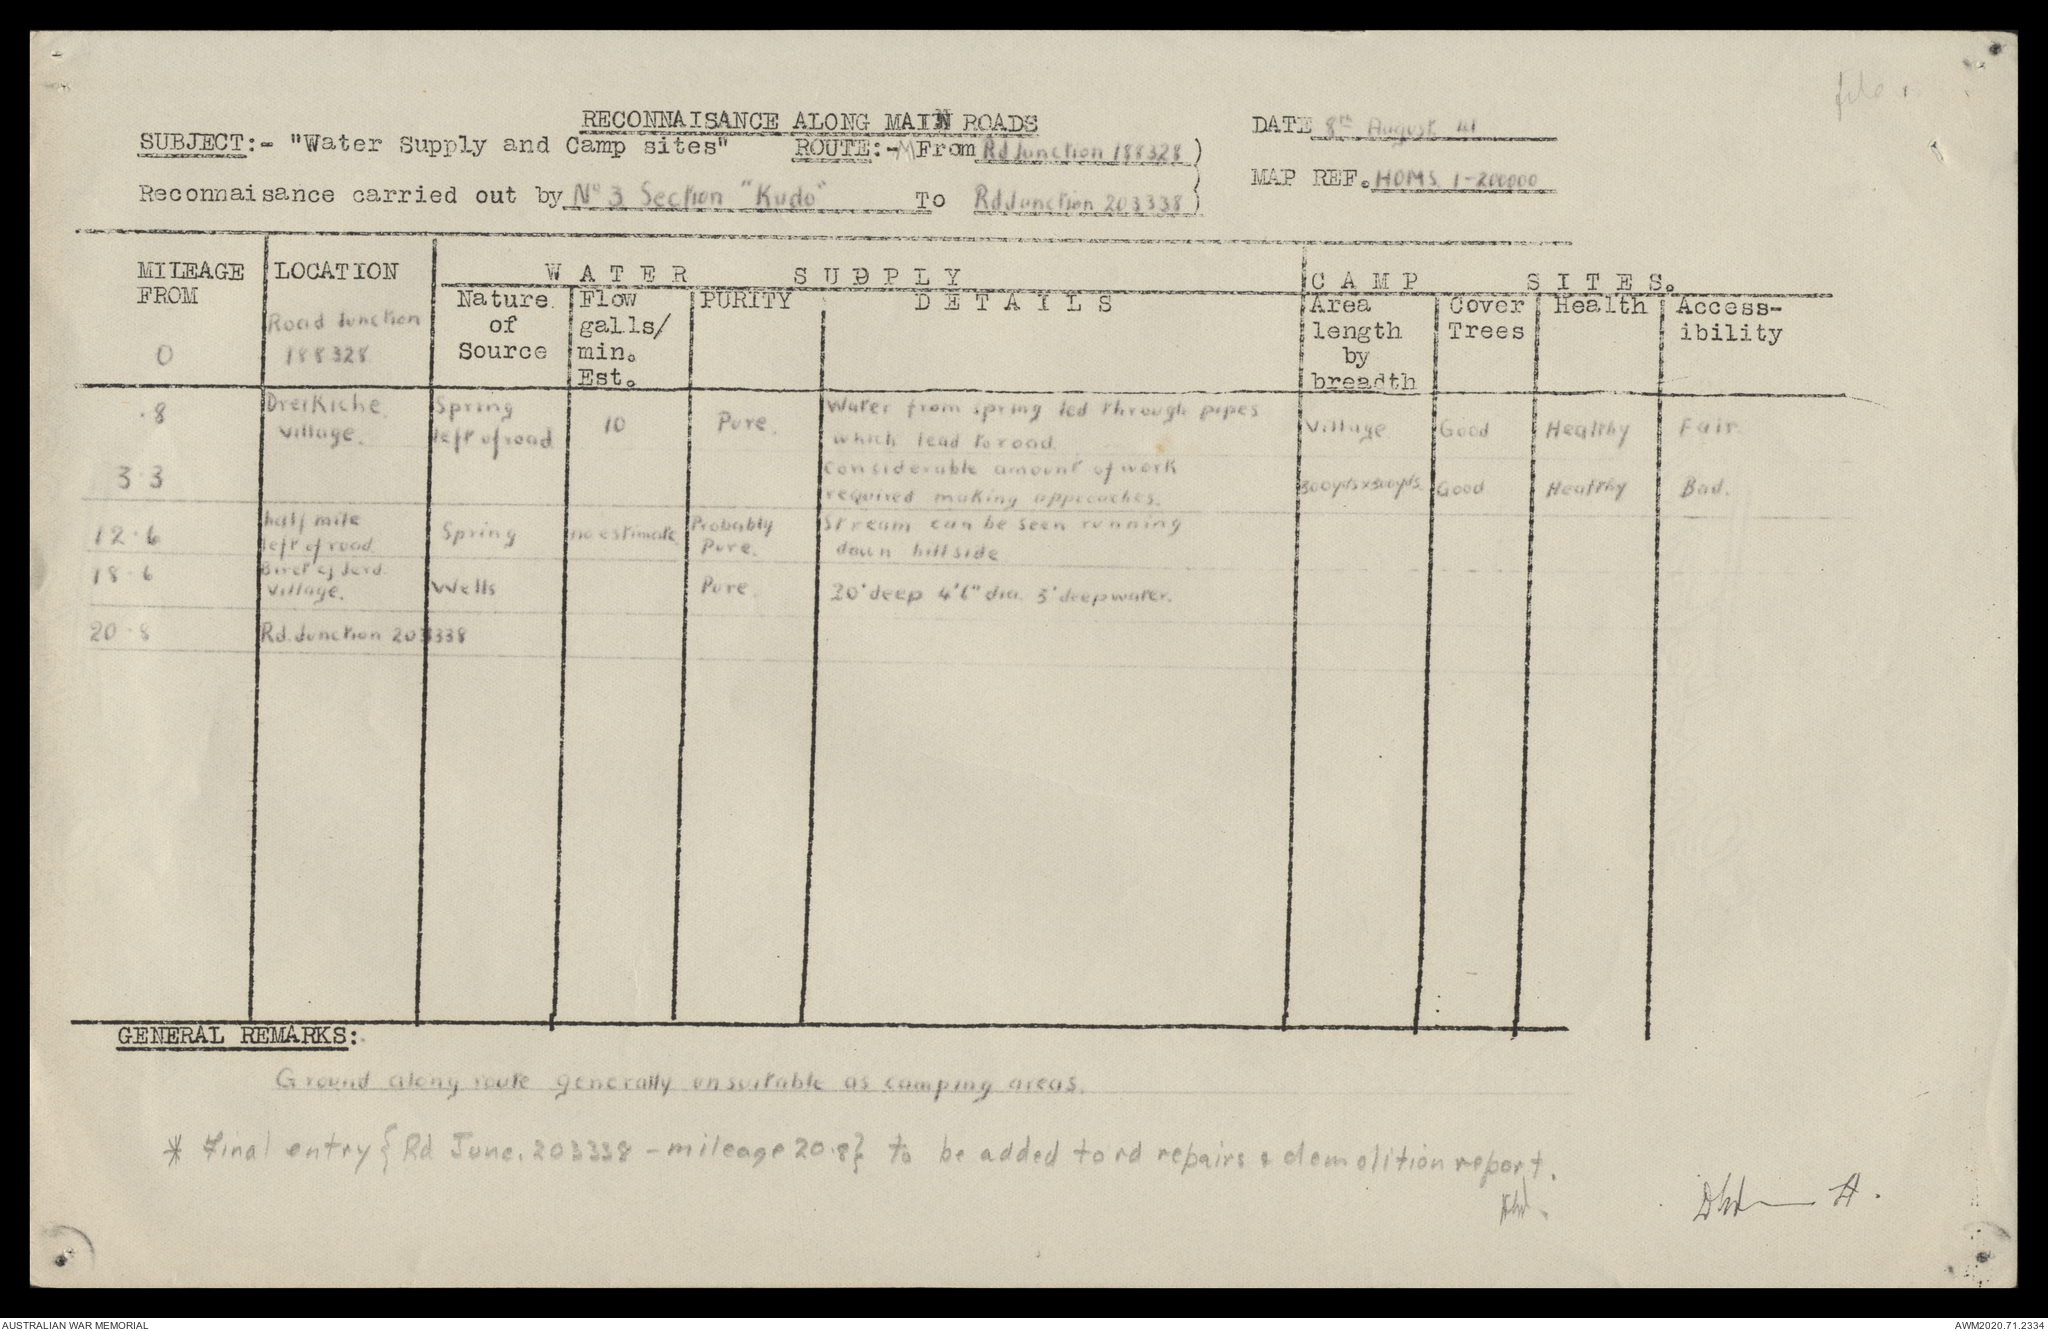 file
RECONNAISANCE ALONG MAIN ROADS
DATE 8th August 41
SUBJECT:- "Water Supply and Camp sites" ROUTE:- From Rd Junction 188328 )
MAP REF. HOMS 1-200000
Reconnaisance carried out by No 3 Section "Kudo" To Rd Junction 203338 )
MILEAGE FROM
0
LOCATION
Road Junction
188328
WATER SUPPLY
Nature of Source
Flow galls/ min. Est.
PURITY
DETAILS
CAMP SITES.
Area length by breadth
Cover Trees
Health
Access- ibility
.8 Dreikiche Village. Spring left of road 10 Pure. Water from spring led through pipes which lead to road. Village Good Healthy Fair.
3.3 Considerable amount of work required making approaches. 300yds x 300yds. Good Healthy Bad.
12.6 half mile left of road Spring no estimate Probably Pure. Stream can be seen running down hillside
18.6 Village. Wells Pure. 20' deep 4'6" dia. 3' deep water.
20.8 Rd. Junction 203338
GENERAL REMARKS:
Ground along route generally unsuitable as camping areas.
* Final entry {Rd Junc. 203338 - mileage 20.8} to be added to rd repairs & demolition report.
AUSTRALIAN WAR MEMORIAL
AWM2020.71.2334